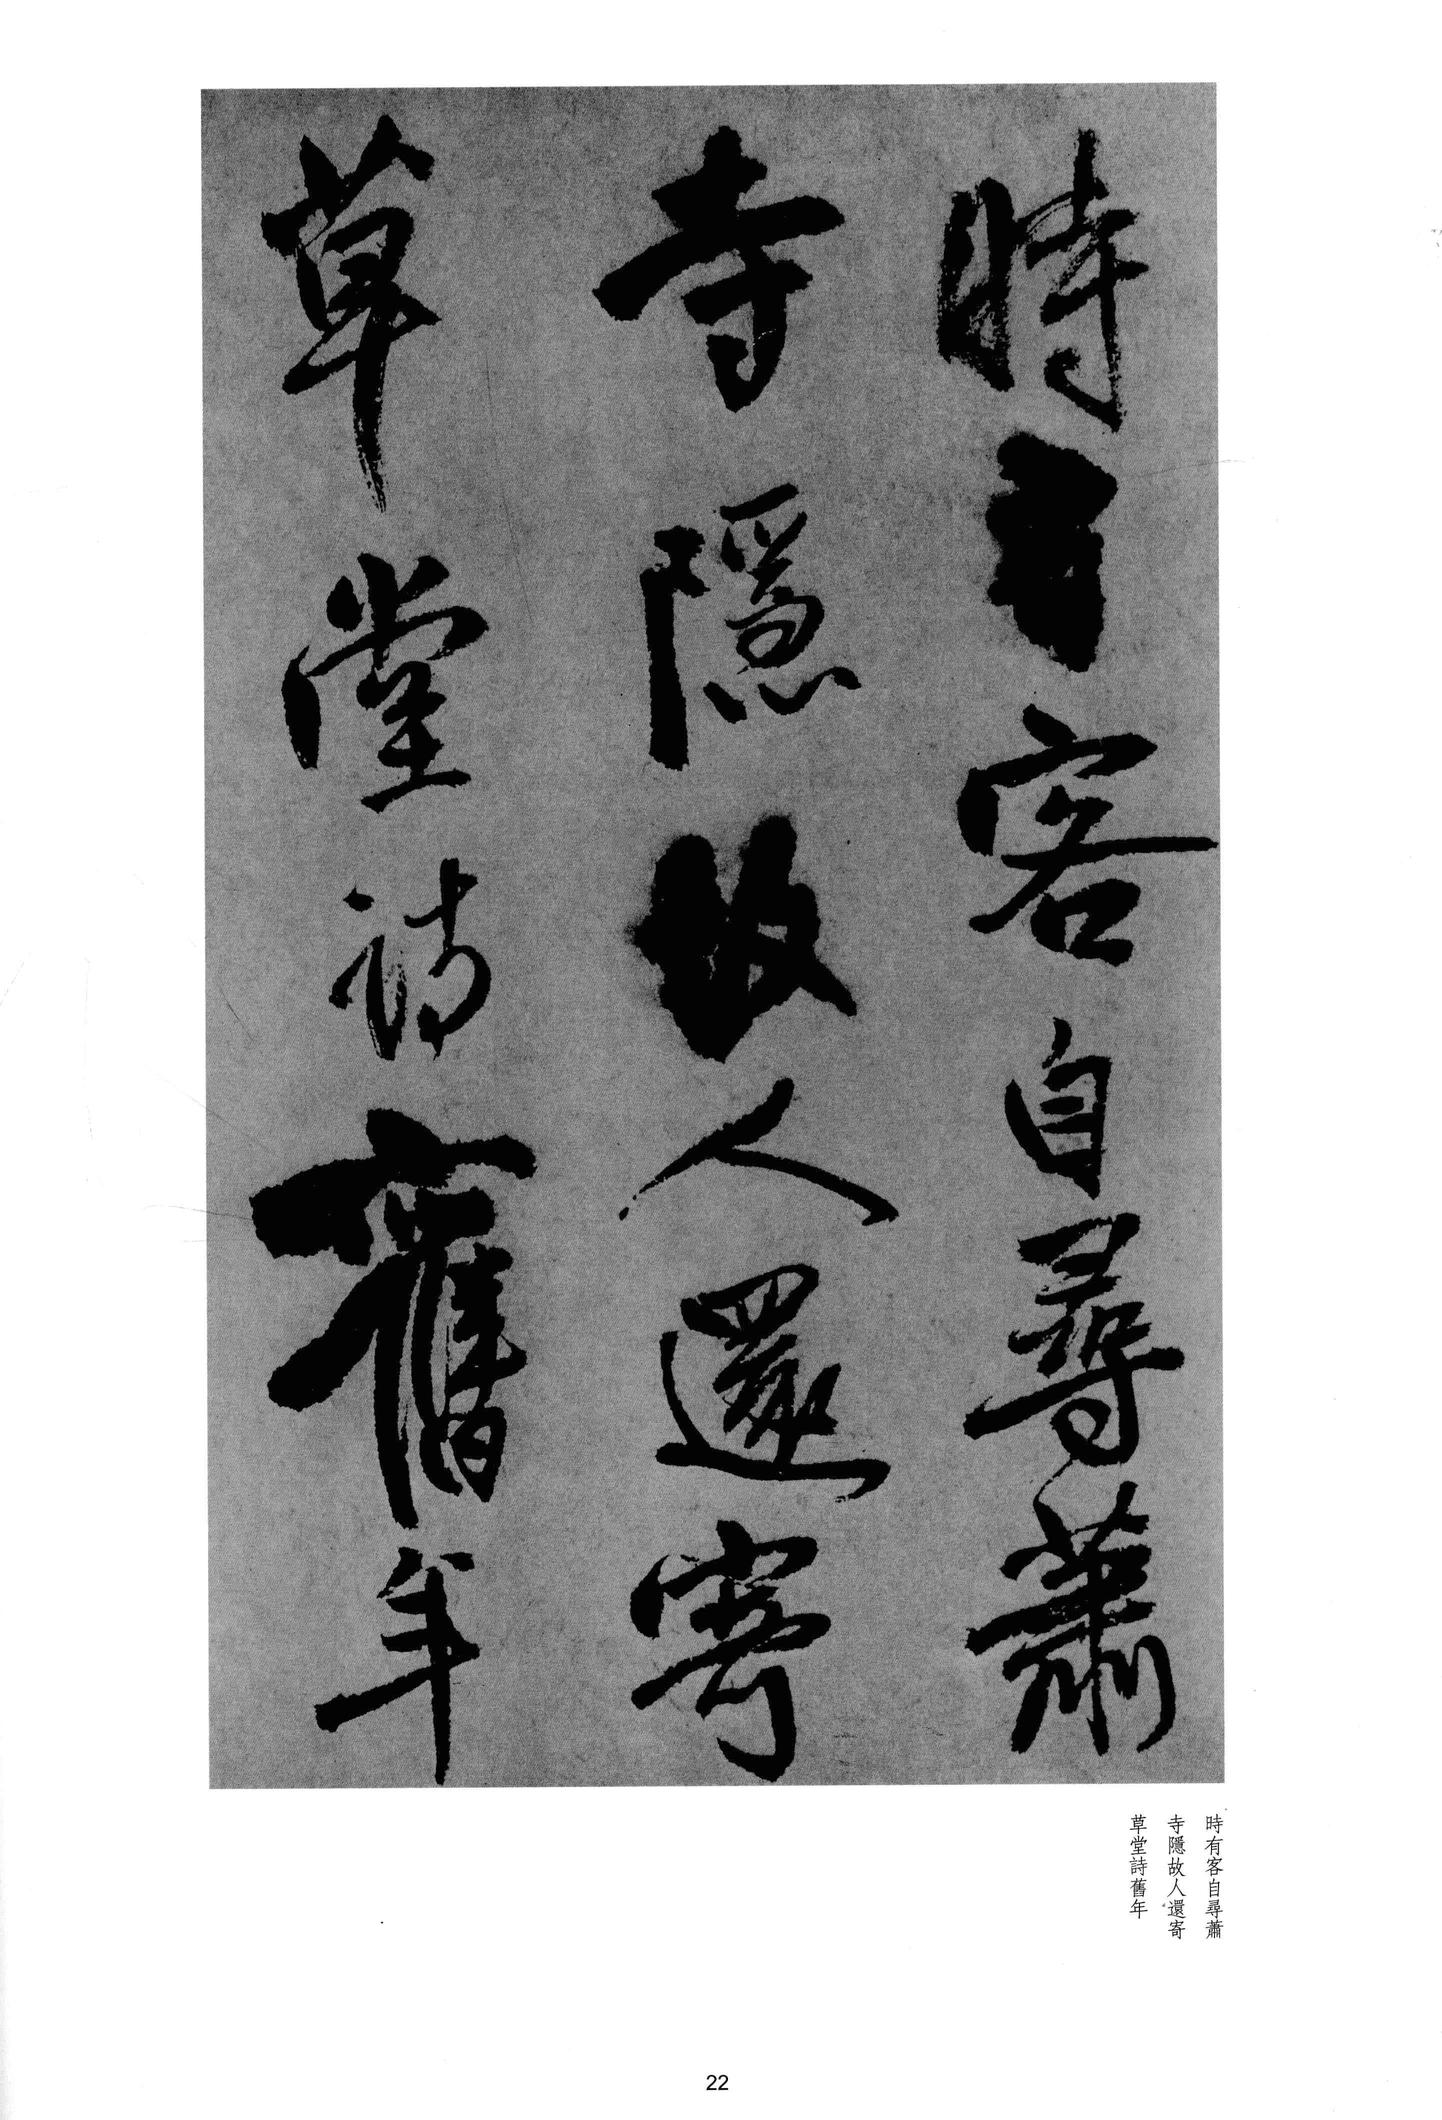 時有客自尋蕭
寺隱故人還寄
草堂詩舊年
時有客自尋蕭
寺隱故人還寄
草堂詩舊年
22